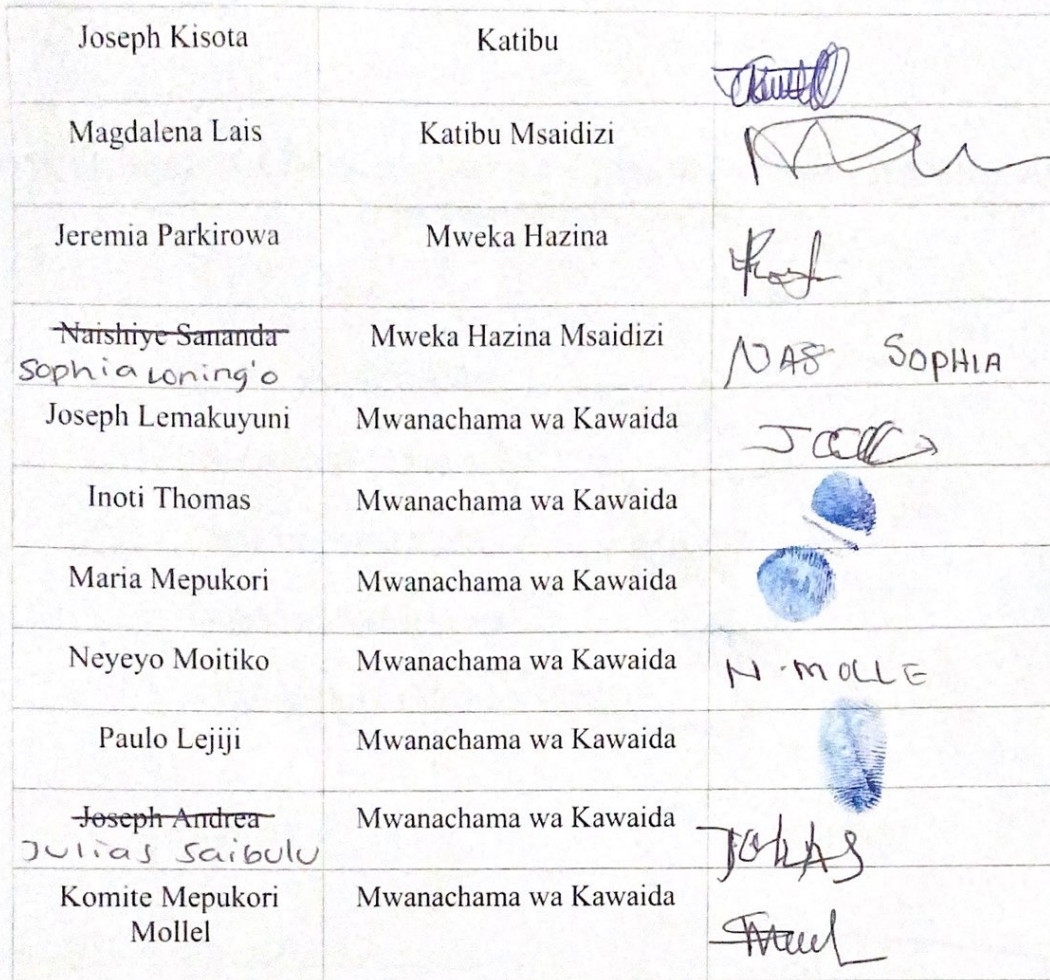 Joseph Kisota Katibu
Magdalena Lais Katibu Msaidizi
Jeremia Parkirowa Mweka Hazina
Naishiye Sananda Mweka Hazina Msaidizi
Sophia Loning'o NAS SOPHIA
Joseph Lemakuyuni Mwanachama wa Kawaida
Inoti Thomas Mwanachama wa Kawaida
Maria Mepukori Mwanachama wa Kawaida
Neyeyo Moitiko Mwanachama wa Kawaida N. MOLLE
Paulo Lejiji Mwanachama wa Kawaida
Joseph Andrea Mwanachama wa Kawaida
Julias Saibulu
Komite Mepukori Mwanachama wa Kawaida
Mollel